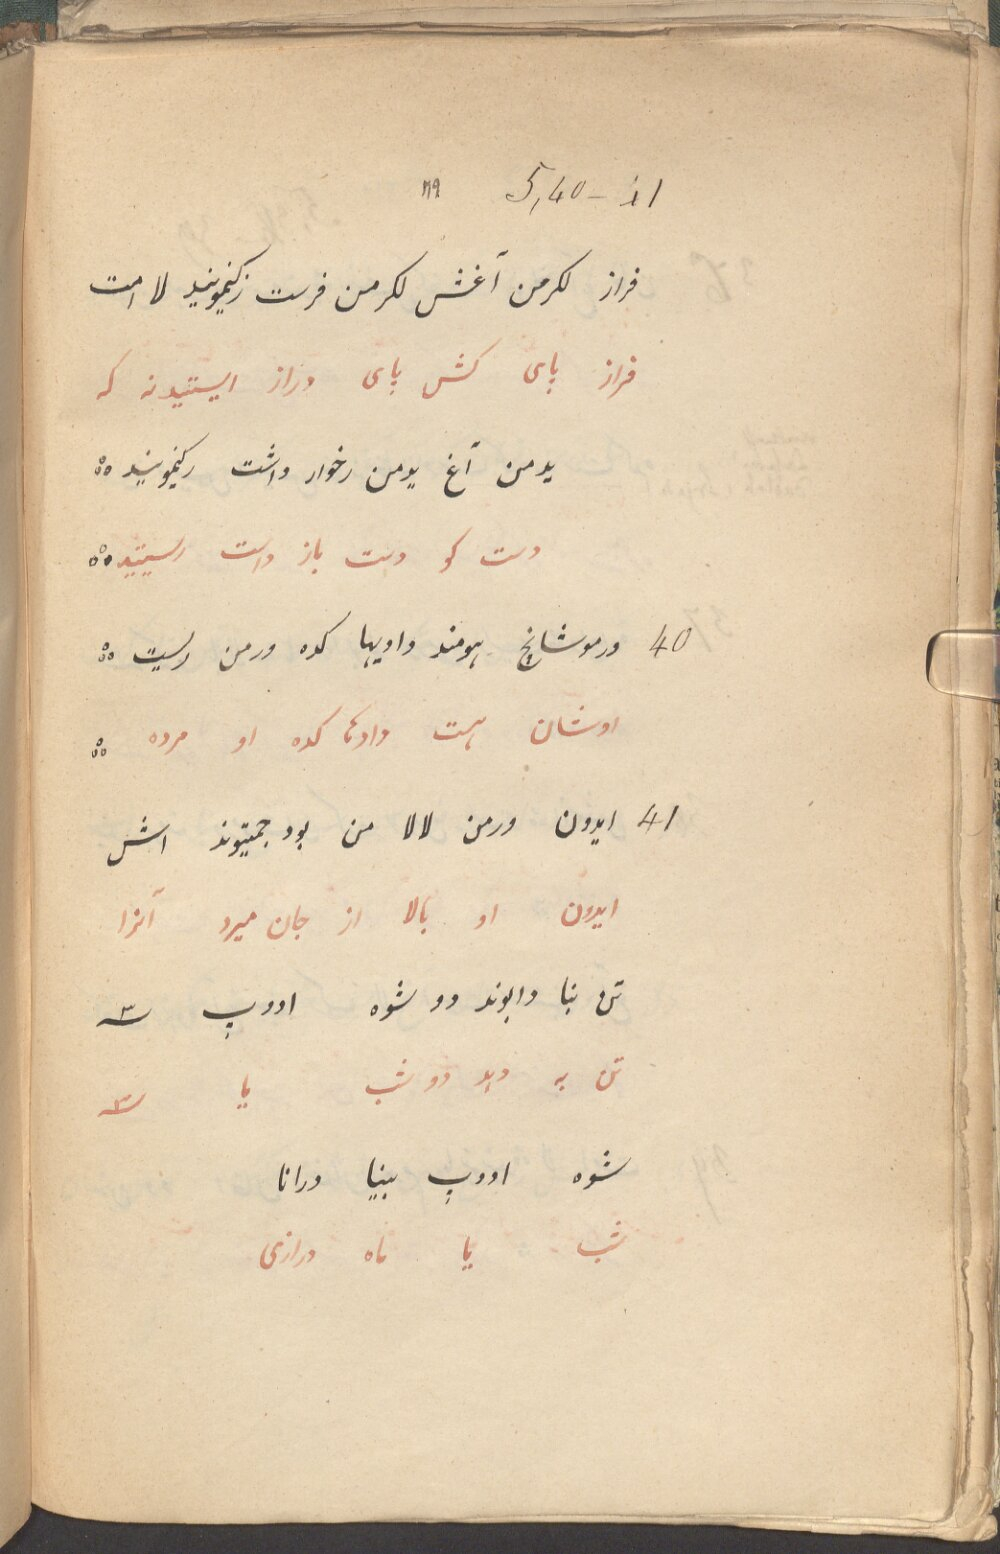 5,40-41 ٣٩
فراز لکرمن آغش لکرمن فرست زکنیمونید لا امت
فراز پای کش پای دراز ایستیدنه که
یدمن آغ یدمن رخوار داشت رکنیمونید ஃ
دست کو دست باز داست رسیتید ஃ
40 ورموشانچ هومند دادیها کده ورمن رلیت ஃ
اوشان هست دادکا کده او مرده ஃ
41 ایدون ورمن لالا من بود جمیتوند اش
ایدون او بالا از جان میرد آنرا
تن بنا دابوند دو شوه اودپ سه
تن به دهد دو شب یا سه
شوه اودپ بینا درانا
شب یا ماه درازی